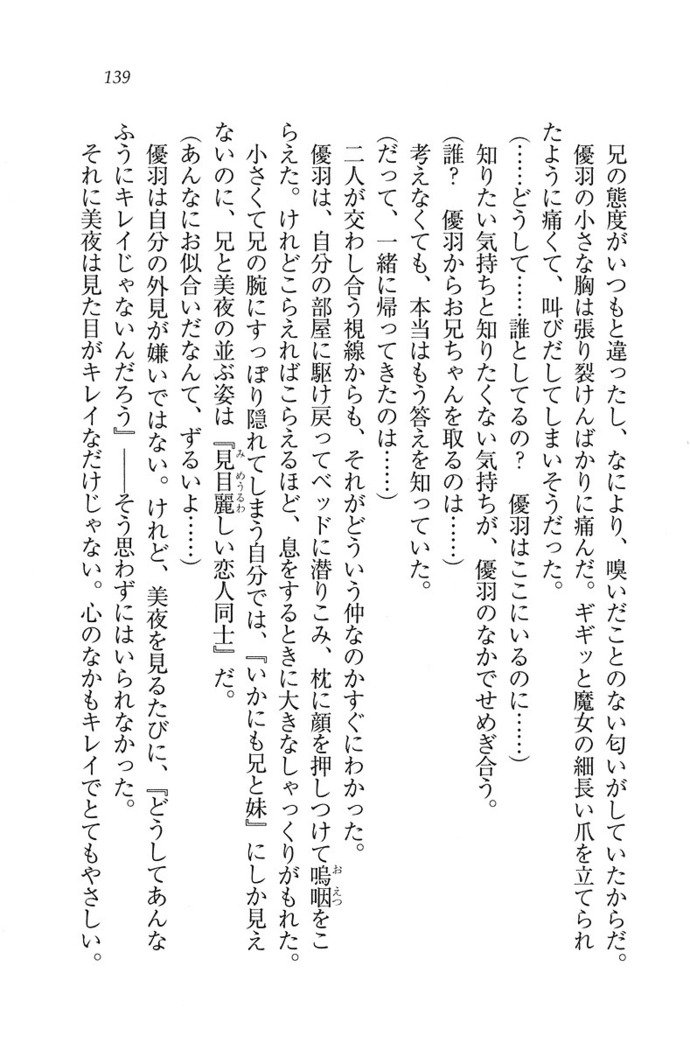 139
兄の態度がいつもと違ったし、なにより、嗅いだことのない匂いがしていたからだ。
優羽の小さな胸は張り裂けんばかりに痛んだ。ギギッと魔女の細長い爪を立てられ
たように痛くて、叫びだしてしまいそうだった。
(……どうして……誰としてるの？　優羽はここにいるのに……)
知りたい気持ちと知りたくない気持ちが、優羽のなかでせめぎ合う。
(誰？　優羽からお兄ちゃんを取るのは……)
考えなくても、本当はもう答えを知っていた。
(だって、一緒に帰ってきたのは……)
二人が交わし合う視線からも、それがどういう仲なのかすぐにわかった。
優羽は、自分の部屋に駆け戻ってベッドに潜りこみ、枕に顔を押しつけて嗚咽をこ
らえた。けれどこらえればこらえるほど、息をするときに大きなしゃっくりがもれた。
小さくて兄の腕にすっぽり隠れてしまう自分では、『いかにも兄と妹』にしか見え
ないのに、兄と美夜の並ぶ姿は『見目麗しい恋人同士』だ。
(あんなにお似合いだなんて、ずるいよ……)
優羽は自分の外見が嫌いではない。けれど、美夜を見るたびに、『どうしてあんな
ふうにキレイじゃないんだろう』――そう思わずにはいられなかった。
それに美夜は見た目がキレイなだけじゃない。心のなかもキレイでとてもやさしい。